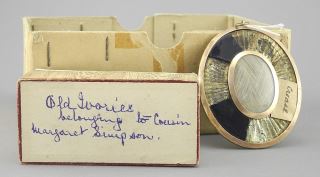 Old Ivories
belonging to Cousin
Margaret Simpson.